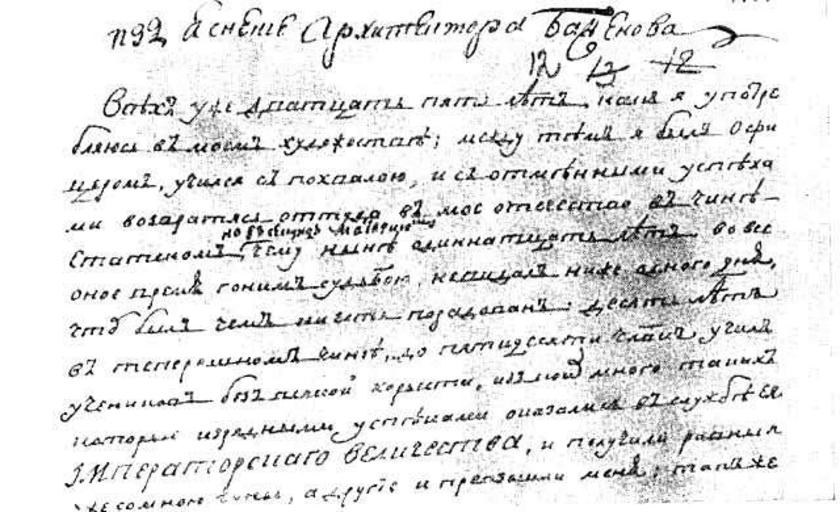 Архитектора Баженова
12 12 12
Всѣхъ уже дватцать пять лѣтъ, какъ я употре
бляюсь въ моемъ художествѣ; между тѣмъ я былъ Офри
церомъ, учился съ похвалою, и съ отмѣнными успѣха
ми возвратясь оттуда въ мое отечество въ чинѣ
Статскомъ, Тому нынѣ одиннатцать лѣтъ во все
оное время гонимъ судьбою, невидалъ ниже одного дня,
чтоб былъ чемъ нибуть порадованъ: десять лѣтъ
въ теперешномъ чинѣ, до пятидесяти человѣкъ училъ
учениковъ безъ всякой корысти, изъ коих много такихъ
которые изрядными успѣхами оказались въ службѣ Ея
Императорскаго Величества, и получили равныя
же со мною чины, а другіе и превзошли меня; такъ же